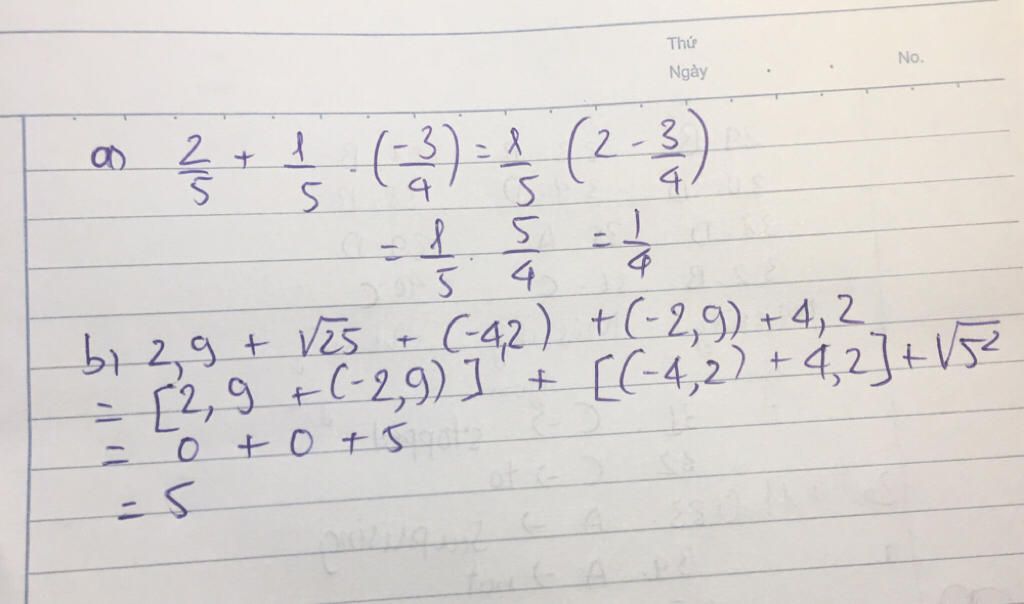 Thứ
Ngày . . No.
a) 2/5 + 1/5 . (-3/4) = 1/5 (2 - 3/4)
= 1/5 . 5/4 = 1/4
b) 2,9 + √25 + (-4,2) + (-2,9) + 4,2
= [2,9 + (-2,9)] + [(-4,2) + 4,2] + √5²
= 0 + 0 + 5
= 5